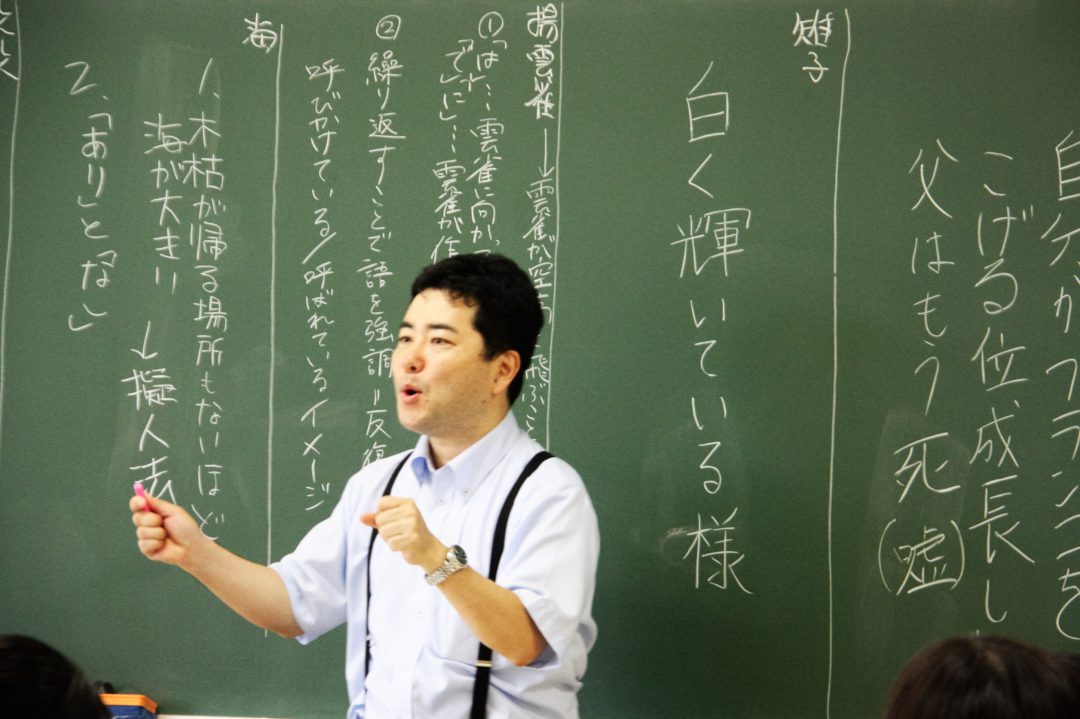 自分がブランコを
こげる位、成長し
父はもう死(嘘)
雉子
白く輝いている様
揚雲雀→雲雀が空高 飛ぶこ
①「は」…雲雀に向かっ
「で」「に」…雲雀が作
②繰り返すことで語を強調=反復
呼びかけている/呼ばれているイメージ
海
1.木枯が帰る場所もないほど
海が大きい→擬人法
2.「あり」と「なし」